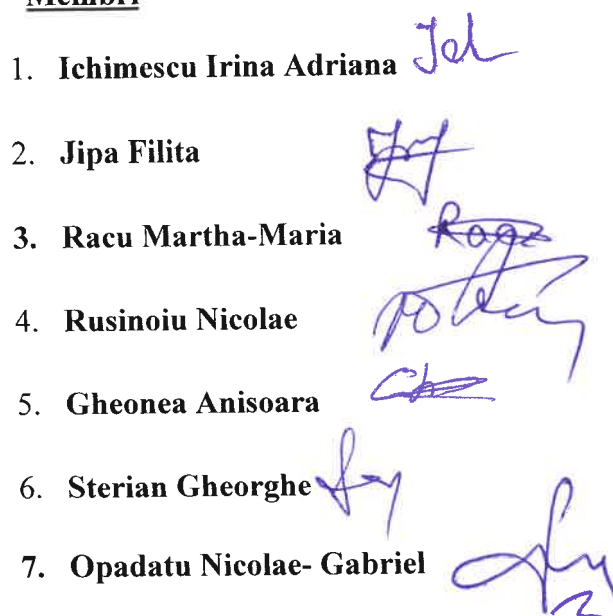 Membri
1. Ichimescu Irina Adriana
2. Jipa Filita
3. Racu Martha-Maria
4. Rusinoiu Nicolae
5. Gheonea Anisoara
6. Sterian Gheorghe
7. Opadatu Nicolae- Gabriel